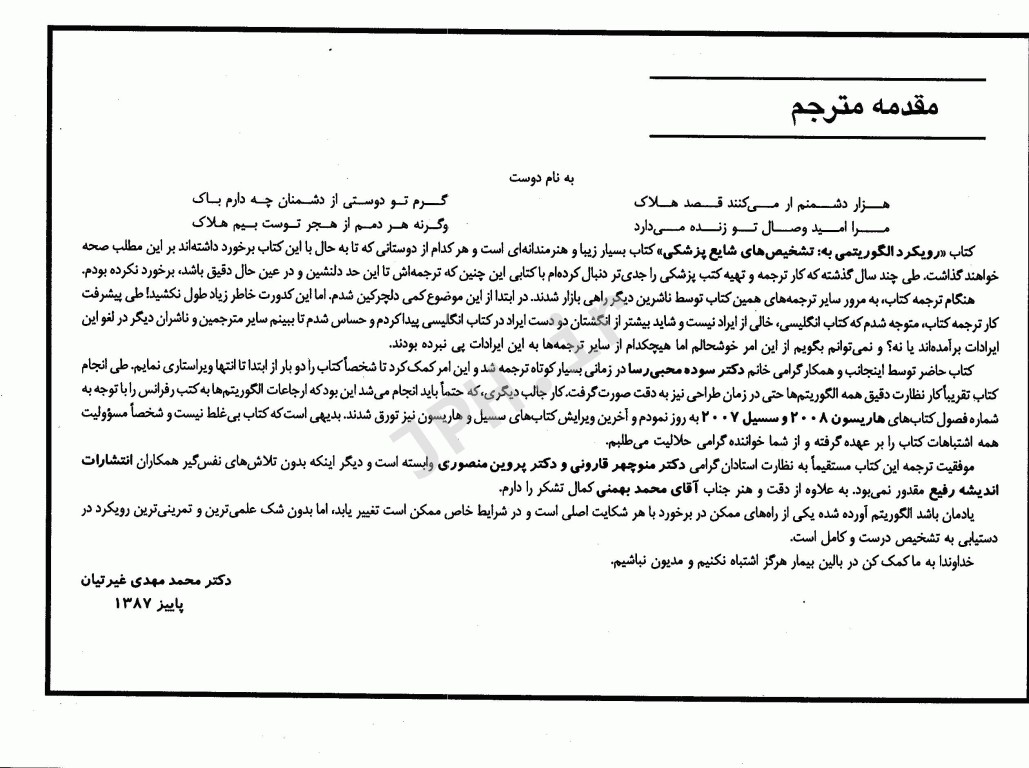 مقدمه مترجم
به نام دوست
هزار دشمنم ار می‌کنند قصد هلاک گرم تو دوستی از دشمنان چه دارم باک
مرا امید وصال تو زنده می‌دارد وگرنه هر دمم از هجر توست بیم هلاک
کتاب «رویکرد الگوریتمی به: تشخیص‌های شایع پزشکی» کتاب بسیار زیبا و هنرمندانه‌ای است و هر کدام از دوستانی که تا به حال با این کتاب برخورد داشته‌اند بر این مطلب صحه
خواهند گذاشت. طی چند سال گذشته که کار ترجمه و تهیه کتب پزشکی را جدی‌تر دنبال کرده‌ام با کتابی این چنین که ترجمه‌اش تا این حد دلنشین و در عین حال دقیق باشد، برخورد نکرده بودم.
هنگام ترجمه کتاب، به مرور سایر ترجمه‌های همین کتاب توسط ناشرین دیگر راهی بازار شدند. در ابتدا از این موضوع کمی دلچرکین شدم. اما این کدورت خاطر زیاد طول نکشید! طی پیشرفت
کار ترجمه کتاب، متوجه شدم که کتاب انگلیسی، خالی از ایراد نیست و شاید بیشتر از انگشتان دو دست ایراد در کتاب انگلیسی پیدا کردم و حساس شدم تا ببینم سایر مترجمین و ناشران دیگر در لغو این
ایرادات برآمده‌اند یا نه؟ و نمی‌توانم بگویم از این امر خوشحالم اما هیچکدام از سایر ترجمه‌ها به این ایرادات پی نبرده بودند.
کتاب حاضر توسط اینجانب و همکار گرامی خانم دکتر سوده محبی‌رسا در زمانی بسیار کوتاه ترجمه شد و این امر کمک کرد تا شخصاً کتاب را دو بار از ابتدا تا انتها ویراستاری نمایم. طی انجام
کتاب تقریباً کار نظارت دقیق همه الگوریتم‌ها حتی در زمان طراحی نیز به دقت صورت گرفت. کار جالب دیگری، که حتماً باید انجام می‌شد این بود که ارجاعات الگوریتم‌ها به کتب رفرانس را با توجه به
شماره فصول کتاب‌های هاریسون ۲۰۰۸ و سسیل ۲۰۰۷ به روز نمودم و آخرین ویرایش کتاب‌های سسیل و هاریسون نیز تورق شدند. بدیهی است که کتاب بی‌غلط نیست و شخصاً مسؤولیت
همه اشتباهات کتاب را بر عهده گرفته و از شما خواننده گرامی حلالیت می‌طلبم.
موفقیت ترجمه این کتاب مستقیماً به نظارت استادان گرامی دکتر منوچهر قارونی و دکتر پروین منصوری وابسته است و دیگر اینکه بدون تلاش‌های نفس‌گیر همکاران انتشارات
اندیشه رفیع مقدور نمی‌بود. به علاوه از دقت و هنر جناب آقای محمد بهمنی کمال تشکر را دارم.
یادمان باشد الگوریتم آورده شده یکی از راه‌های ممکن در برخورد با هر شکایت اصلی است و در شرایط خاص ممکن است تغییر یابد، اما بدون شک علمی‌ترین و تمرینی‌ترین رویکرد در
دستیابی به تشخیص درست و کامل است.
خداوندا به ما کمک کن در بالین بیمار هرگز اشتباه نکنیم و مدیون نباشیم.
دکتر محمد مهدی غیرتیان
پاییز ۱۳۸۷